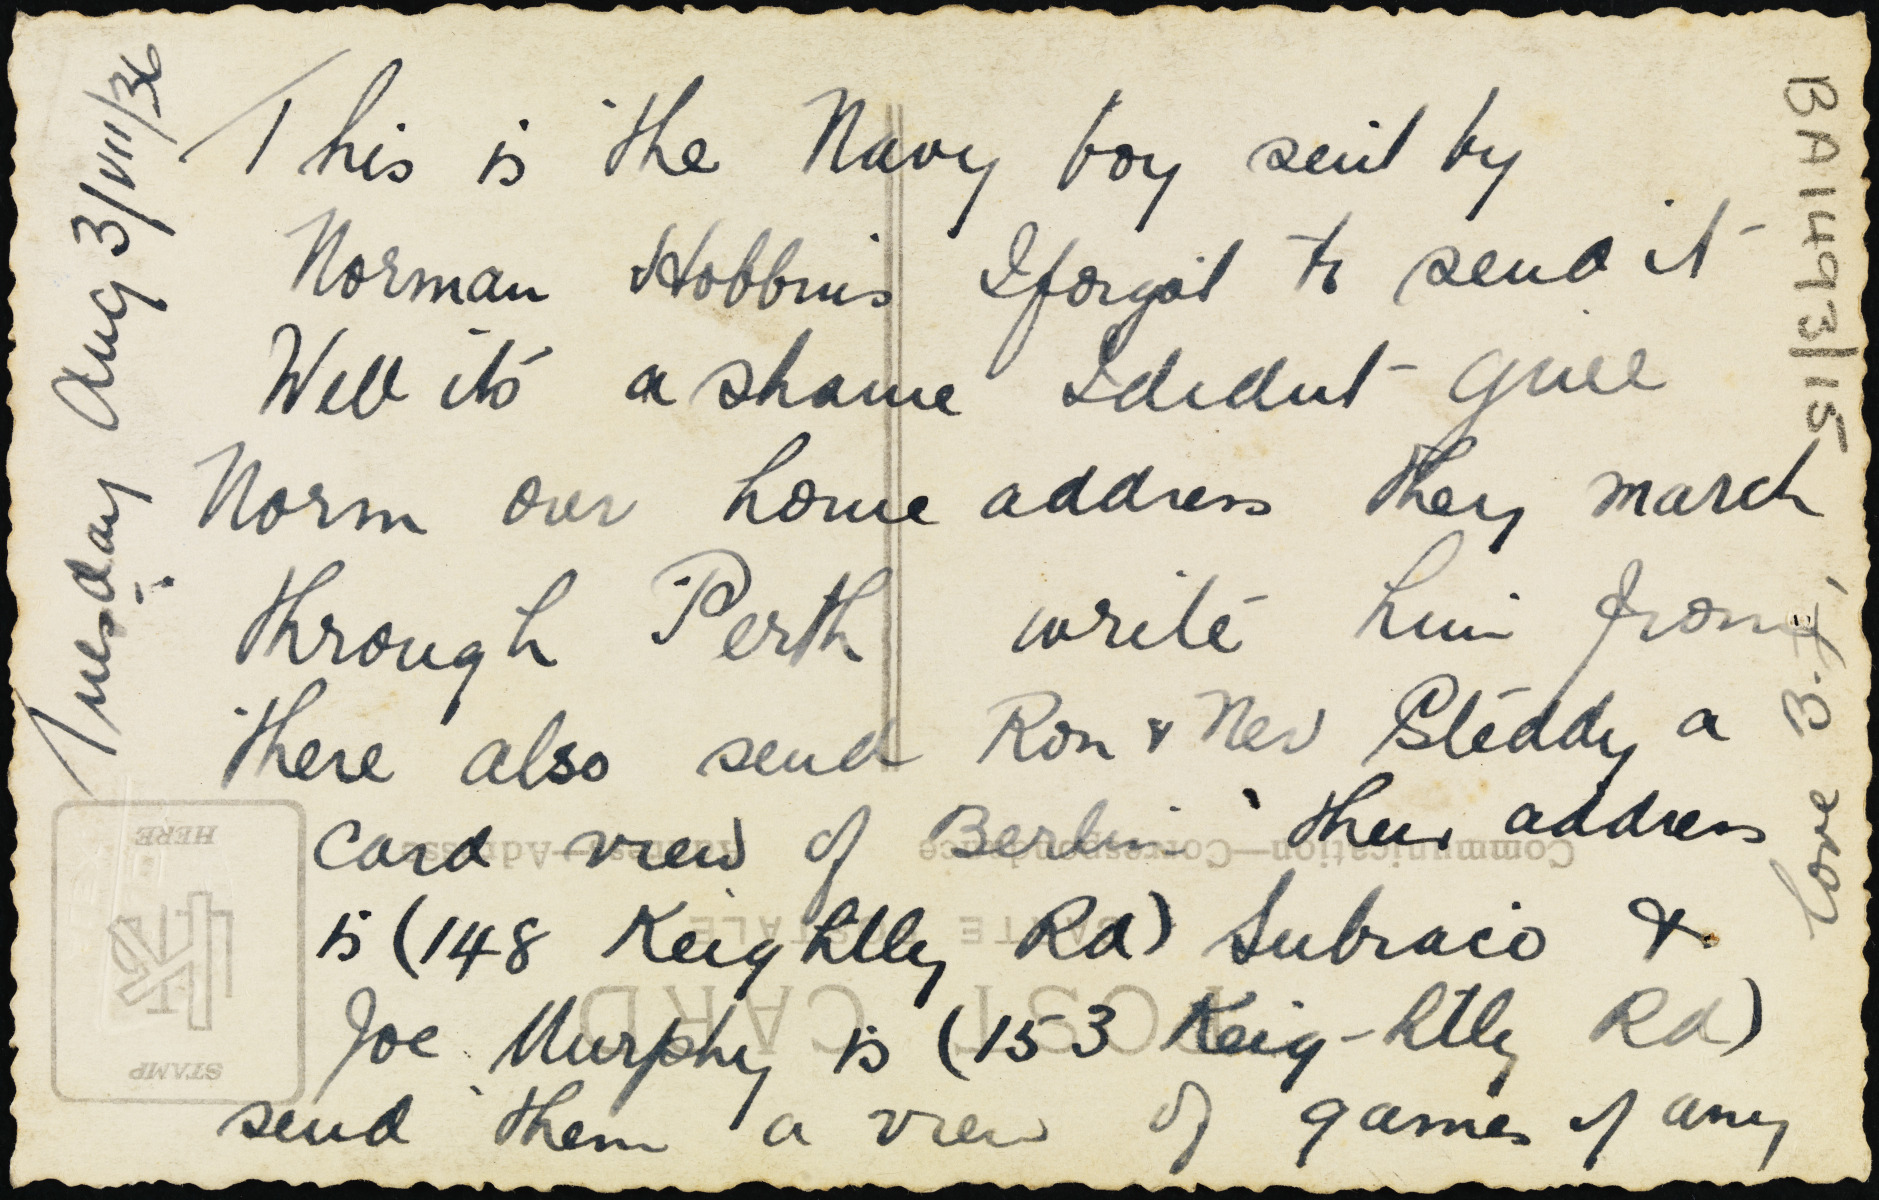 Tuesday Aug 3/VIII/36
This is the Navy boy sent by
Norman Hobbins I forgot to send it
Well its a shame I didnt give
Norm our home address they march
through Perth write him from
there also send Ron & Nev Steddy a
card view of Berlin their address
is (148 Keightly Rd) Subiaco &
Joe Murphy is (153 Keig-htly Rd)
send them a view of games if any
love B.
BA1493/15
POST CARD
CARTE POSTALE
Communication—Correspondance
Address—Adresse
STAMP
HERE